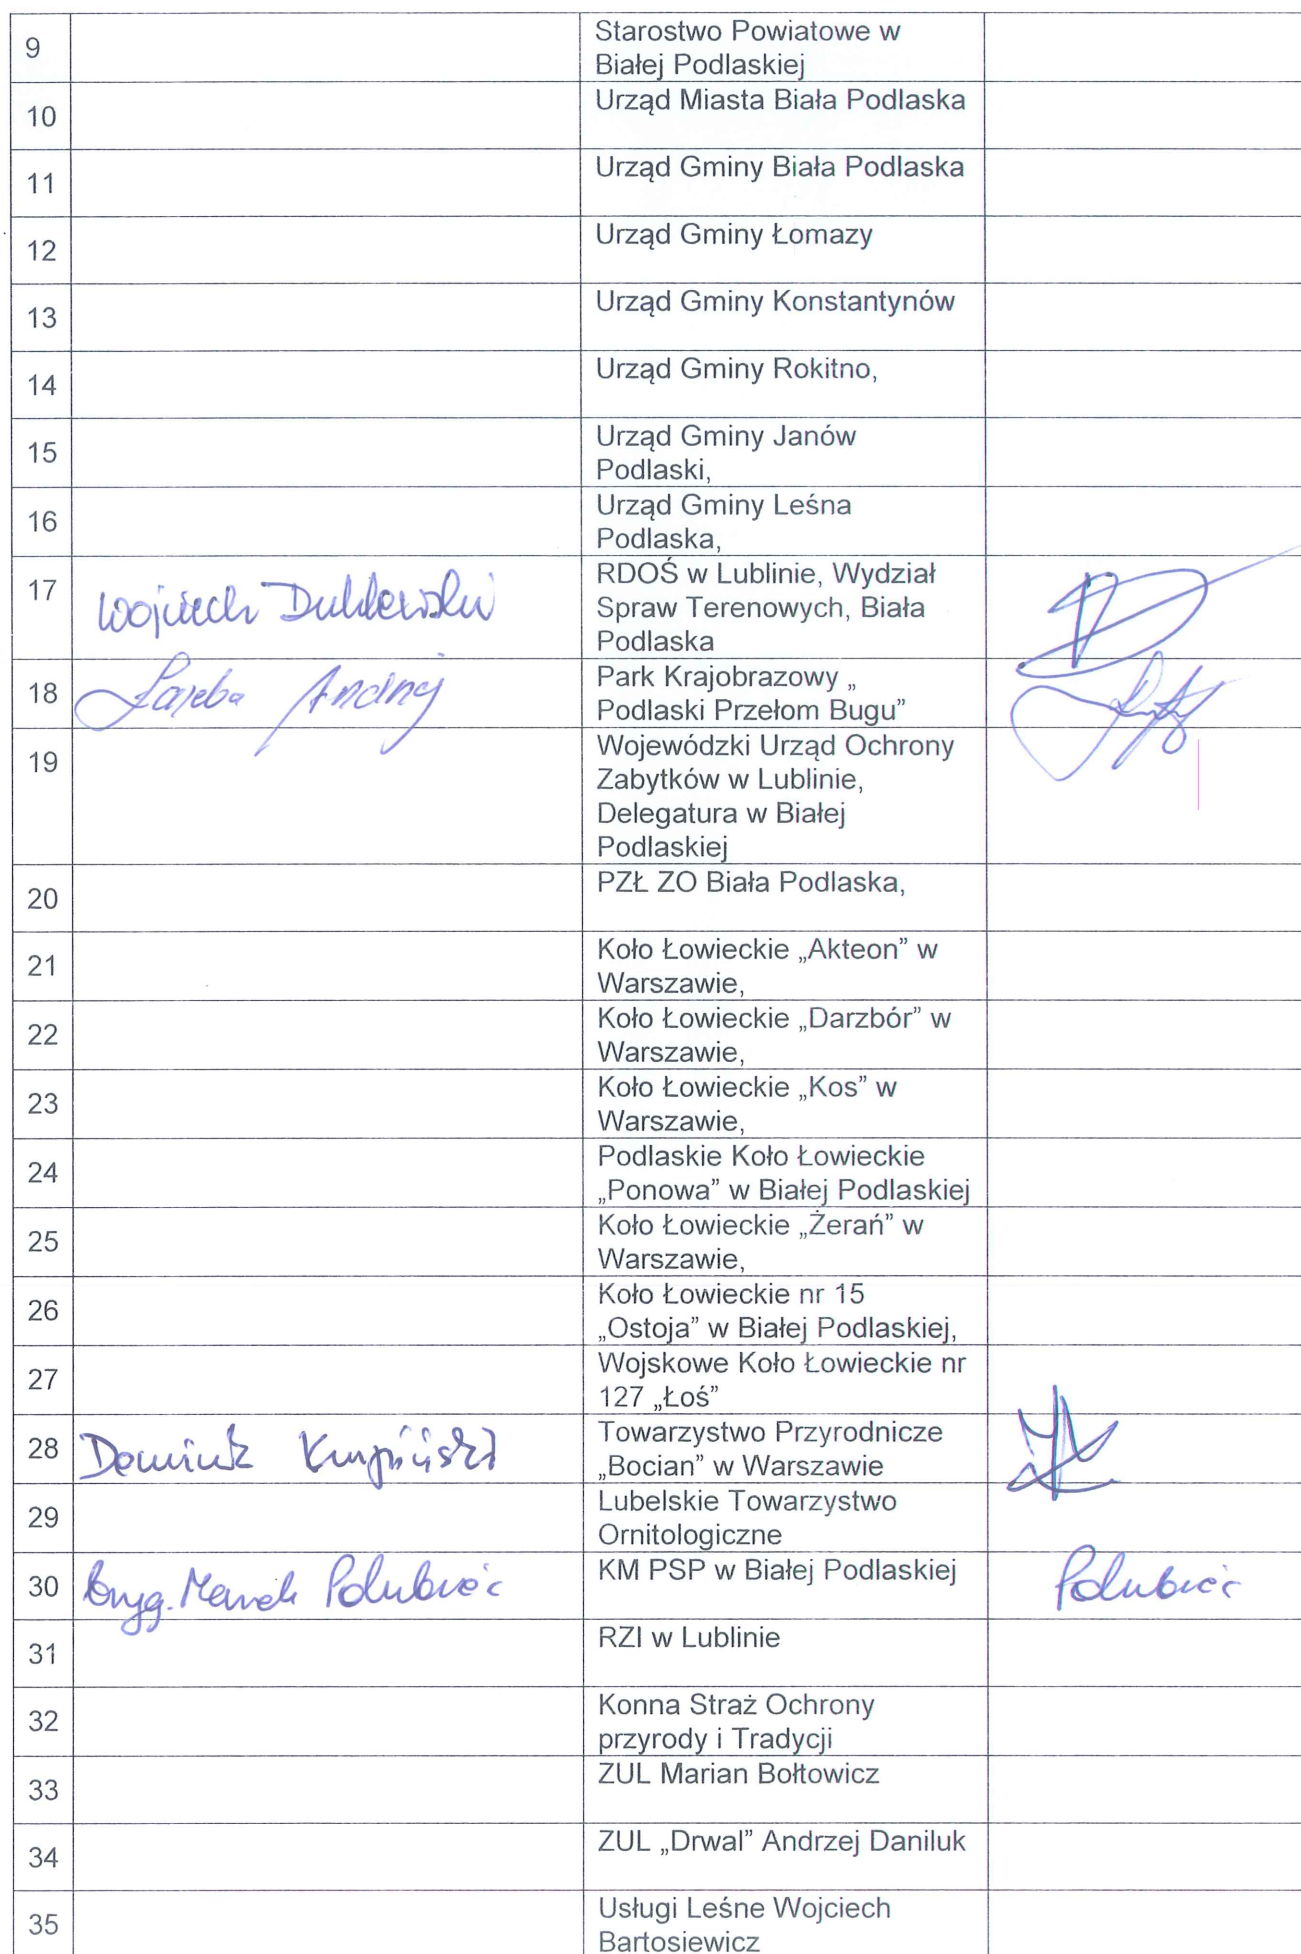 9
Starostwo Powiatowe w
Białej Podlaskiej
10
Urząd Miasta Biała Podlaska
11
Urząd Gminy Biała Podlaska
12
Urząd Gminy Łomazy
13
Urząd Gminy Konstantynów
14
Urząd Gminy Rokitno,
15
Urząd Gminy Janów
Podlaski,
16
Urząd Gminy Leśna
Podlaska,
17
Wojciech
RDOŚ w Lublinie, Wydział
Spraw Terenowych, Biała
Podlaska
18
Park Krajobrazowy „
Podlaski Przełom Bugu”
19
Wojewódzki Urząd Ochrony
Zabytków w Lublinie,
Delegatura w Białej
Podlaskiej
20
PZŁ ZO Biała Podlaska,
21
Koło Łowieckie „Akteon” w
Warszawie,
22
Koło Łowieckie „Darzbór” w
Warszawie,
23
Koło Łowieckie „Kos” w
Warszawie,
24
Podlaskie Koło Łowieckie
„Ponowa” w Białej Podlaskiej
25
Koło Łowieckie „Żerań” w
Warszawie,
26
Koło Łowieckie nr 15
„Ostoja” w Białej Podlaskiej,
27
Wojskowe Koło Łowieckie nr
127 „Łoś”
28
Dominik Krupiński
Towarzystwo Przyrodnicze
„Bocian” w Warszawie
29
Lubelskie Towarzystwo
Ornitologiczne
30
bryg. Marek
KM PSP w Białej Podlaskiej
31
RZI w Lublinie
32
Konna Straż Ochrony
przyrody i Tradycji
33
ZUL Marian Bołtowicz
34
ZUL „Drwal” Andrzej Daniluk
35
Usługi Leśne Wojciech
Bartosiewicz